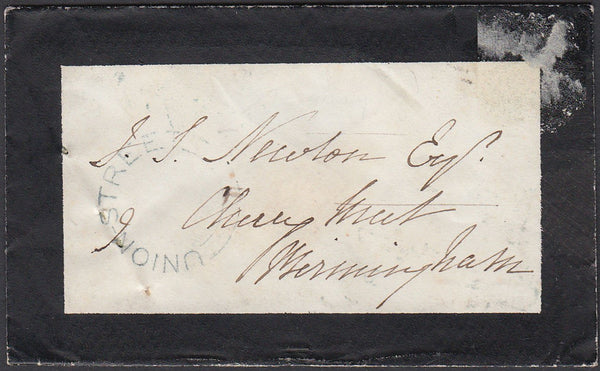 J. S. Newton Esqr.
9 Cherry Street
Birmingham
UNION STREET